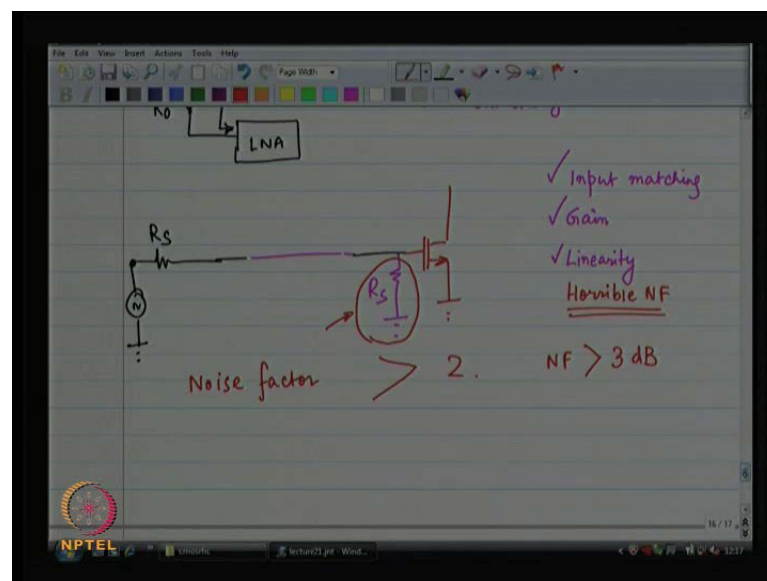 File Edit View Insert Actions Tools Help
Page Width
B I
LNA
Input matching
Gain
Linearity
Horrible NF
NF > 3 dB
RS
RS
Noise factor > 2.
16 / 17
NPTEL
cmosrfic
lecture21.jnt - Wind...
12:17